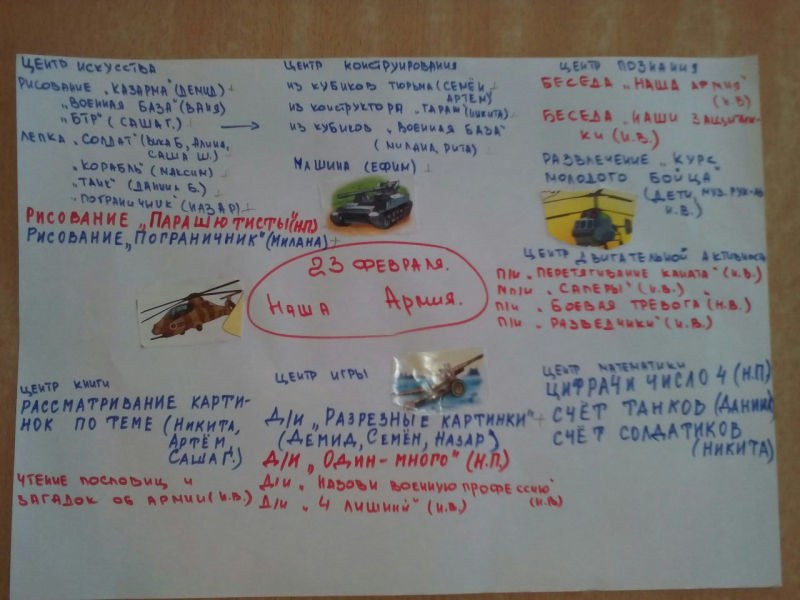 ЦЕНТР ИСКУССТВА
РИСОВАНИЕ „КАЗАРМА"(ДЕМИД)+
„ВОЕННАЯ БАЗА"(ВАНЯ)
„БТР"(САША Г.)
ЛЕПКА „СОЛДАТ"(ВИКА Б, АЛИНА,
САША Ш.)
„КОРАБЛЬ"(МАКСИМ)
„ТАНК"(ДАНИИЛ Б.)
„ПОГРАНИЧНИК"(НАЗАР)
РИСОВАНИЕ „ПАРАШЮТИСТЫ"(Н.П)
РИСОВАНИЕ „ПОГРАНИЧНИК"(МИЛАНА)+
ЦЕНТР КОНСТРУИРОВАНИЯ
ИЗ КУБИКОВ ТЮРЬМА(СЕМЁН,
АРТЁМ)
ИЗ КОНСТРУКТОРА „ГАРАЖ"(НИКИТА)
ИЗ КУБИКОВ „ВОЕННАЯ БАЗА"
(МИЛАНА, РИТА)
МАШИНА (ЕФИМ)
ЦЕНТР ПОЗНАНИЯ
БЕСЕДА „НАША АРМИЯ"
(И.В)
БЕСЕДА „НАШИ ЗАЩИТНИ-
КИ (И.В.)
РАЗВЛЕЧЕНИЕ „КУРС
МОЛОДОГО БОЙЦА"
(ДЕТИ, МУЗ. РУК-ЛЬ
И.В.)
ЦЕНТР ДВИГАТЕЛЬНОЙ АКТИВНОСТИ
П/И „ПЕРЕТЯГИВАНИЕ КАНАТА"(И.В.)
МП/И „САПЕРЫ"(И.В.)
П/И „БОЕВАЯ ТРЕВОГА"(И.В.)
П/И „РАЗВЕДЧИКИ"(И.В.)
23 ФЕВРАЛЯ.
НАША АРМИЯ.
ЦЕНТР КНИГИ
РАССМАТРИВАНИЕ КАРТИ-
НОК ПО ТЕМЕ (НИКИТА,
АРТЁМ,
САША Г.)
ЧТЕНИЕ ПОСЛОВИЦ И
ЗАГАДОК ОБ АРМИИ(И.В.)
ЦЕНТР ИГРЫ
Д/И „РАЗРЕЗНЫЕ КАРТИНКИ"+
(ДЕМИД, СЕМЁН, НАЗАР)
Д/И „ОДИН-МНОГО"(Н.П.)
Д/И „НАЗОВИ ВОЕННУЮ ПРОФЕССИЮ"
(И.В)
Д/И „4 ЛИШНИЙ"(И.В.)
ЦЕНТР МАТЕМАТИКИ
ЦИФРА ЧИ ЧИСЛО 4 (Н.П)
СЧЁТ ТАНКОВ (ДАНИИЛ)
СЧЁТ СОЛДАТИКОВ
(НИКИТА)